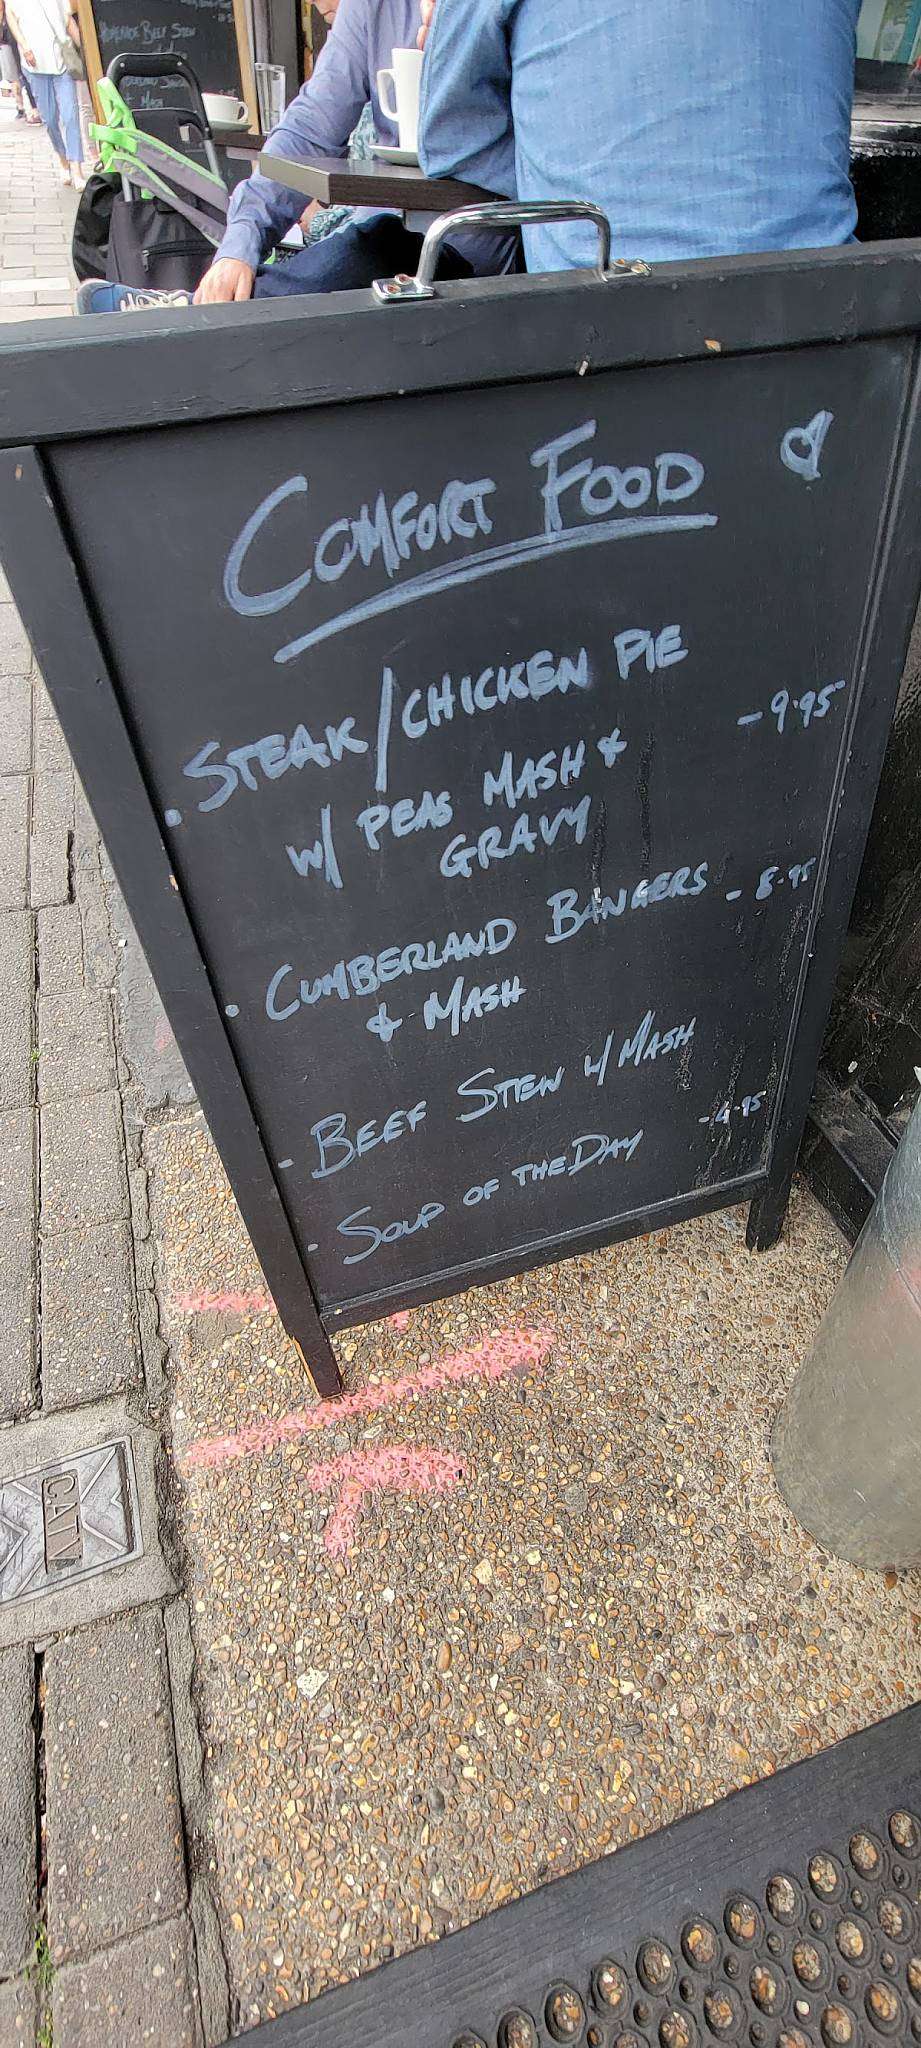 HOMEMADE BEEF STEW
& MASH
COMFORT FOOD
. STEAK/CHICKEN PIE
W/ PEAS MASH & - 9.95
GRAVY
. CUMBERLAND BANGERS - 8.95
& MASH
- BEEF STEW W/ MASH
. SOUP OF THE DAY - 4.95
CATV